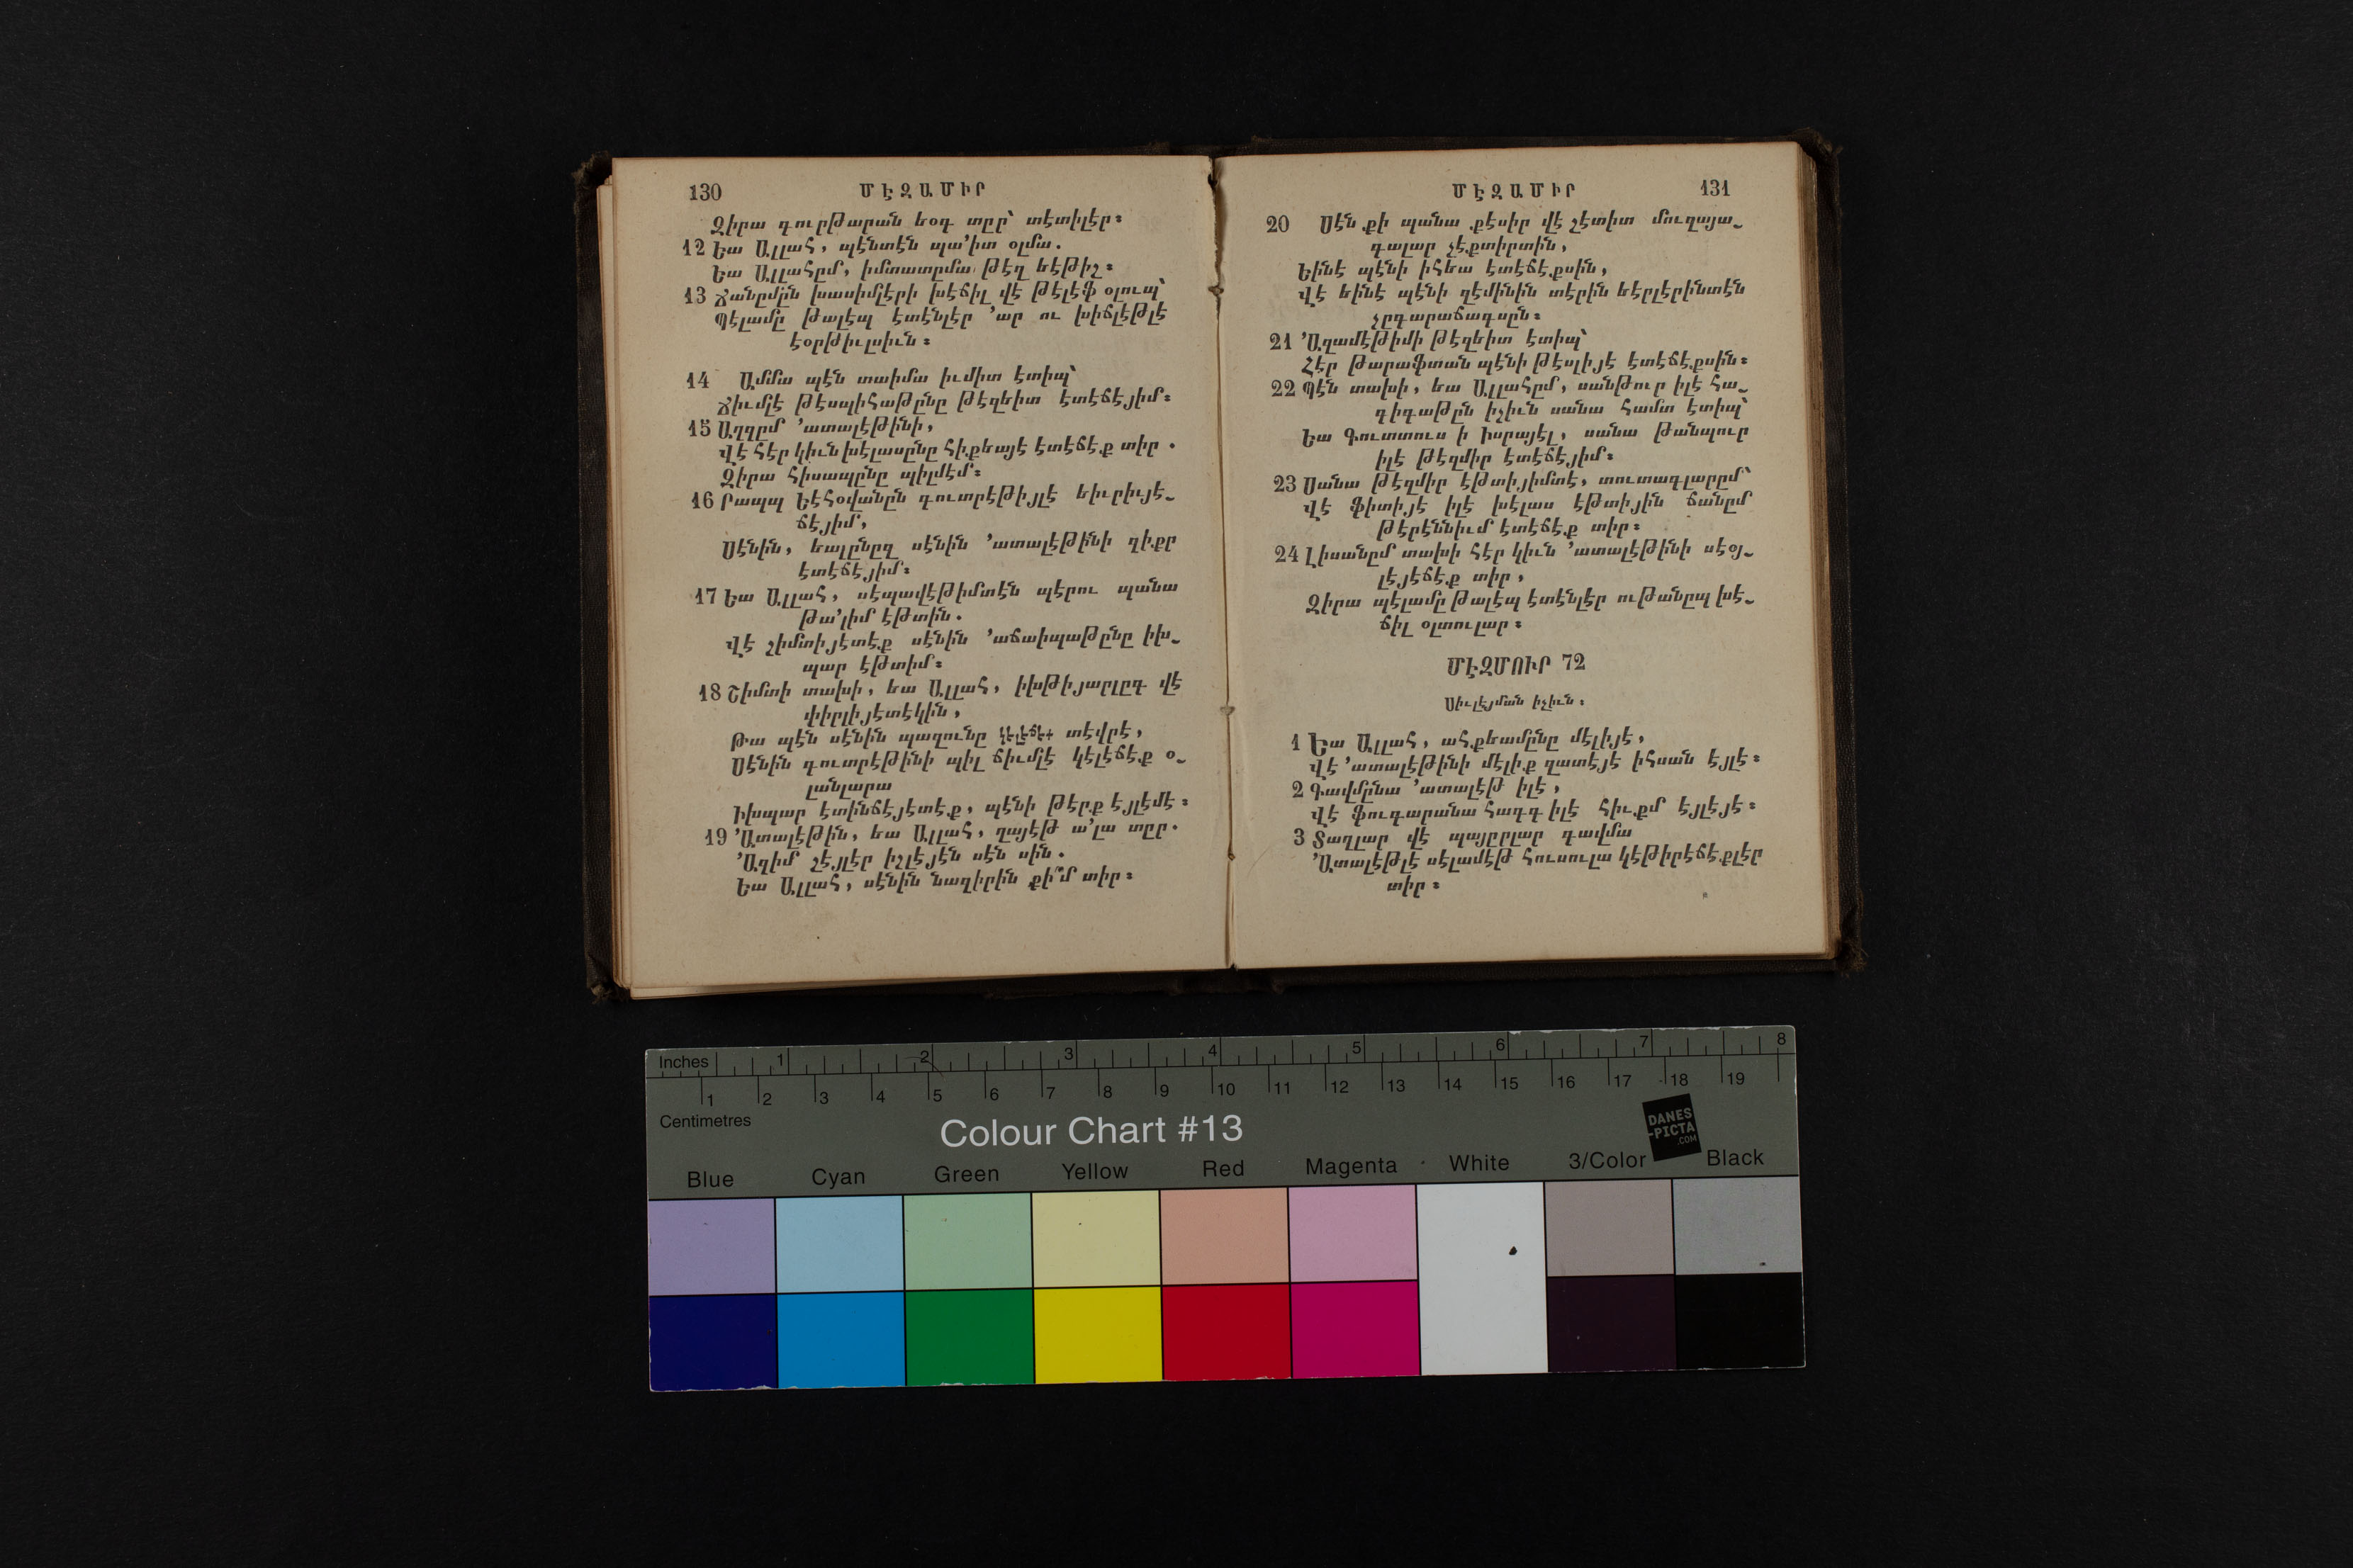 130 ՄԷԶԱՄԻՐ
Զիրա գուրթարան եօգ տըր՝ տէտիլէր։
12 Եա Ալլահ, պէնտէն պա՚իտ օլմա.
Եա Ալլահըմ, իմտատըմա թէզ եէթիշ։
13 Ճանըմըն խասիմլէրի խէճիլ վէ թէլէֆ օլուպ՝
Պէլամը թալէպ էտէնլէր ՚ար ու խիճլէթլէ
էօրթիւլսիւն։
14 Ամմա պէն տաիմա իւմիտ էտիպ՝
Ճիւմլէ թէսպիհաթընը թէզեիտ էտէճէյիմ։
15 Աղզըմ ՚ատալէթինի,
Վէ հէր կիւն խէլասընը հիքեայէ էտէճէք տիր.
Զիրա հիսապընը պիլմէմ։
16 Րապպ Եէհօվանըն գուտրէթիյլէ եիւրիւյէ֊
ճէյիմ,
Սէնին, եալընըզ սէնին ՚ատալէթինի զիքր
էտէճէյիմ։
17 Եա Ալլահ, սէպավէթիմտէն պէրու պանա
թա՚լիմ էթտին.
Վէ շիմտիյէտէք սէնին ՚աճաիպաթընը իխ֊
պար էթտիմ։
18 Շիմտի տախի, եա Ալլահ, իխթիյարլըգ վէ
փիրլիյէտէկին,
Թա պէն սէնին պազունը կէլէճէք տէվրէ,
Սէնին գուտրէթինի պիլ ճիւմլէ կէլէճէք օ֊
լանլարա
Իխպար էտինճէյէտէք, պէնի թէրք էյլէմէ։
19 ՚Ատալէթին, եա Ալլահ, ղայէթ ա՚լա տըր.
՚Ազիմ շէյլէր իշլէյէն սէն սին.
Եա Ալլահ, սէնին նազիրին քի՞մ տիր։
ՄԷԶԱՄԻՐ 131
20 Սէն քի պանա քէսիր վէ շէտիտ մուզայա֊
գալար չէքտիրտին,
Եինէ պէնի իհեա էտէճէքսին,
Վէ եինէ պէնի զէմինին տէրին եէրլէրինտէն
չըգարաճագսըն։
21 ՚Ազամէթիմի թէզեիտ էտիպ՝
Հէր թարաֆտան պէնի թէսլիյէ էտէճէքսին։
22 Պէն տախի, եա Ալլահըմ, սանթուր իլէ հա֊
գիգաթըն իչիւն սանա համտ էտիպ՝
Եա Գուտտուս ի Իսրայէլ, սանա թանպուր
իլէ թէզմիր էտէճէյիմ։
23 Սանա թէզմիր էթտիյիմտէ, տուտագլարըմ՝
Վէ ֆիտիյէ իլէ խէլաս էթտիյին ճանըմ
թէրէննիւմ էտէճէք տիր։
24 Լիսանըմ տախի հէր կիւն ՚ատալէթինի սէօյ֊
լէյէճէք տիր,
Զիրա պէլամը թալէպ էտէնլէր ութանըպ խէ֊
ճիլ օլտուլար։
ՄԷԶՄՈՒՐ 72
Սիւլէյման իչիւն։
1 Եա Ալլահ, ահքեամընը մէլիյէ,
Վէ ՚ատալէթինի մէլիք զատէյէ իհսան էյլէ։
2 Գավմընա ՚ատալէթ իլէ,
Վէ ֆուգարանա հագգ իլէ հիւքմ էյլէյէ։
3 Տաղլար վէ պայըրլար գավմա
՚Ատալէթլէ սէլամէթ հուսուլա կէթիրէճէքլէր
տիր։
Inches 1 2 3 4 5 6 7 8
1 2 3 4 5 6 7 8 9 10 11 12 13 14 15 16 17 18 19
Centimetres
Colour Chart #13
DANES
-PICTA
.COM
Blue Cyan Green Yellow Red Magenta White 3/Color Black